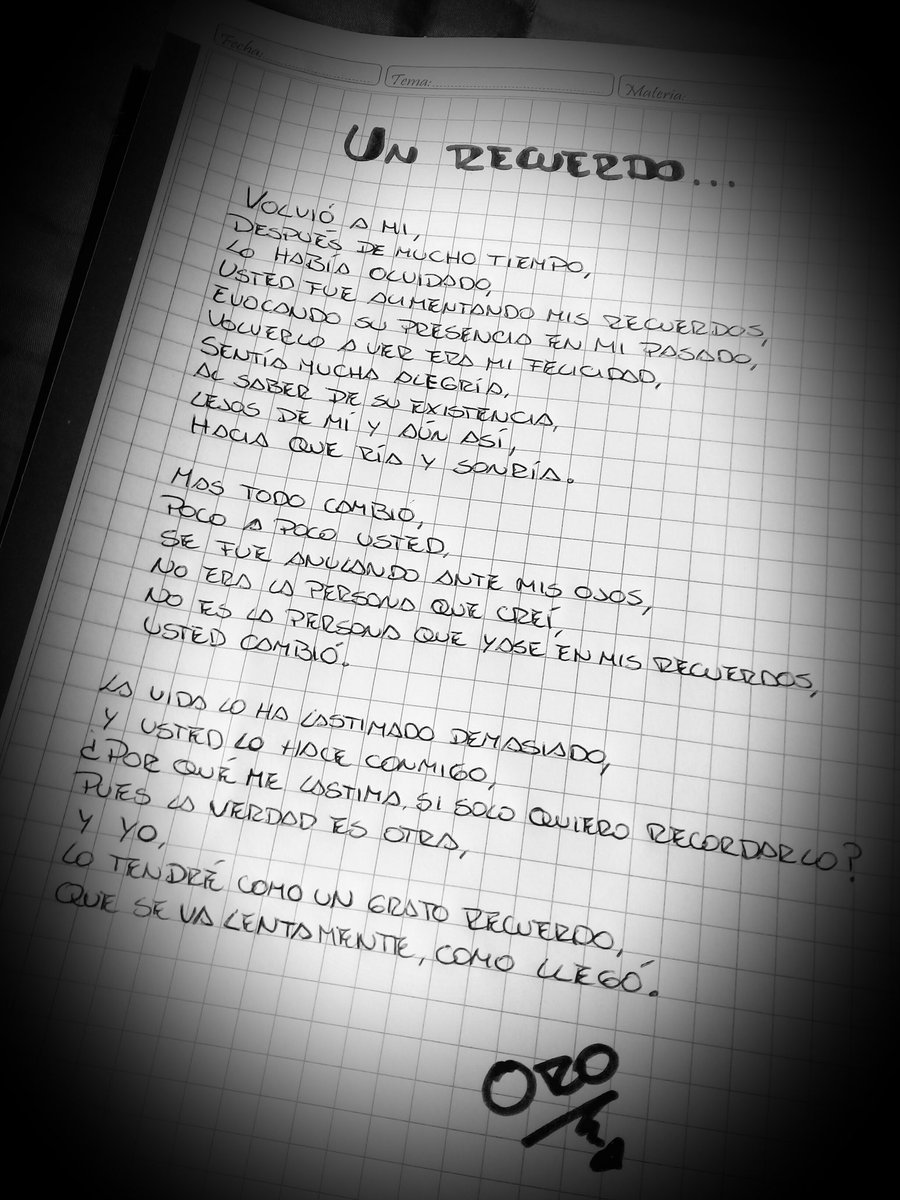 Fecha:
Tema:
Materia:
UN RECUERDO...
VOLVIÓ A MI,
DESPUÉS DE MUCHO TIEMPO,
LO HABÍA OLVIDADO,
USTED FUE AUMENTANDO MIS RECUERDOS,
EVOCANDO SU PRESENCIA EN MI PASADO,
VOLVERLO A VER ERA MI FELICIDAD,
SENTÍA MUCHA ALEGRÍA,
AL SABER DE SU EXISTENCIA,
LEJOS DE MÍ Y AÚN ASÍ,
HACIA QUE RÍA Y SONRÍA.
MAS TODO CAMBIÓ,
POCO A POCO USTED,
SE FUE ANULANDO ANTE MIS OJOS,
NO ERA LA PERSONA QUE CREÍ,
NO ES LA PERSONA QUE YASE EN MIS RECUERDOS,
USTED CAMBIÓ.
LA VIDA LO HA LASTIMADO DEMASIADO,
Y USTED LO HACE CONMIGO,
¿POR QUÉ ME LASTIMA, SI SOLO QUIERO RECORDARLO?
PUES LA VERDAD ES OTRA,
Y YO,
LO TENDRÉ COMO UN GRATO RECUERDO,
QUE SE VA LENTAMENTE, COMO LLEGÓ.
ORO